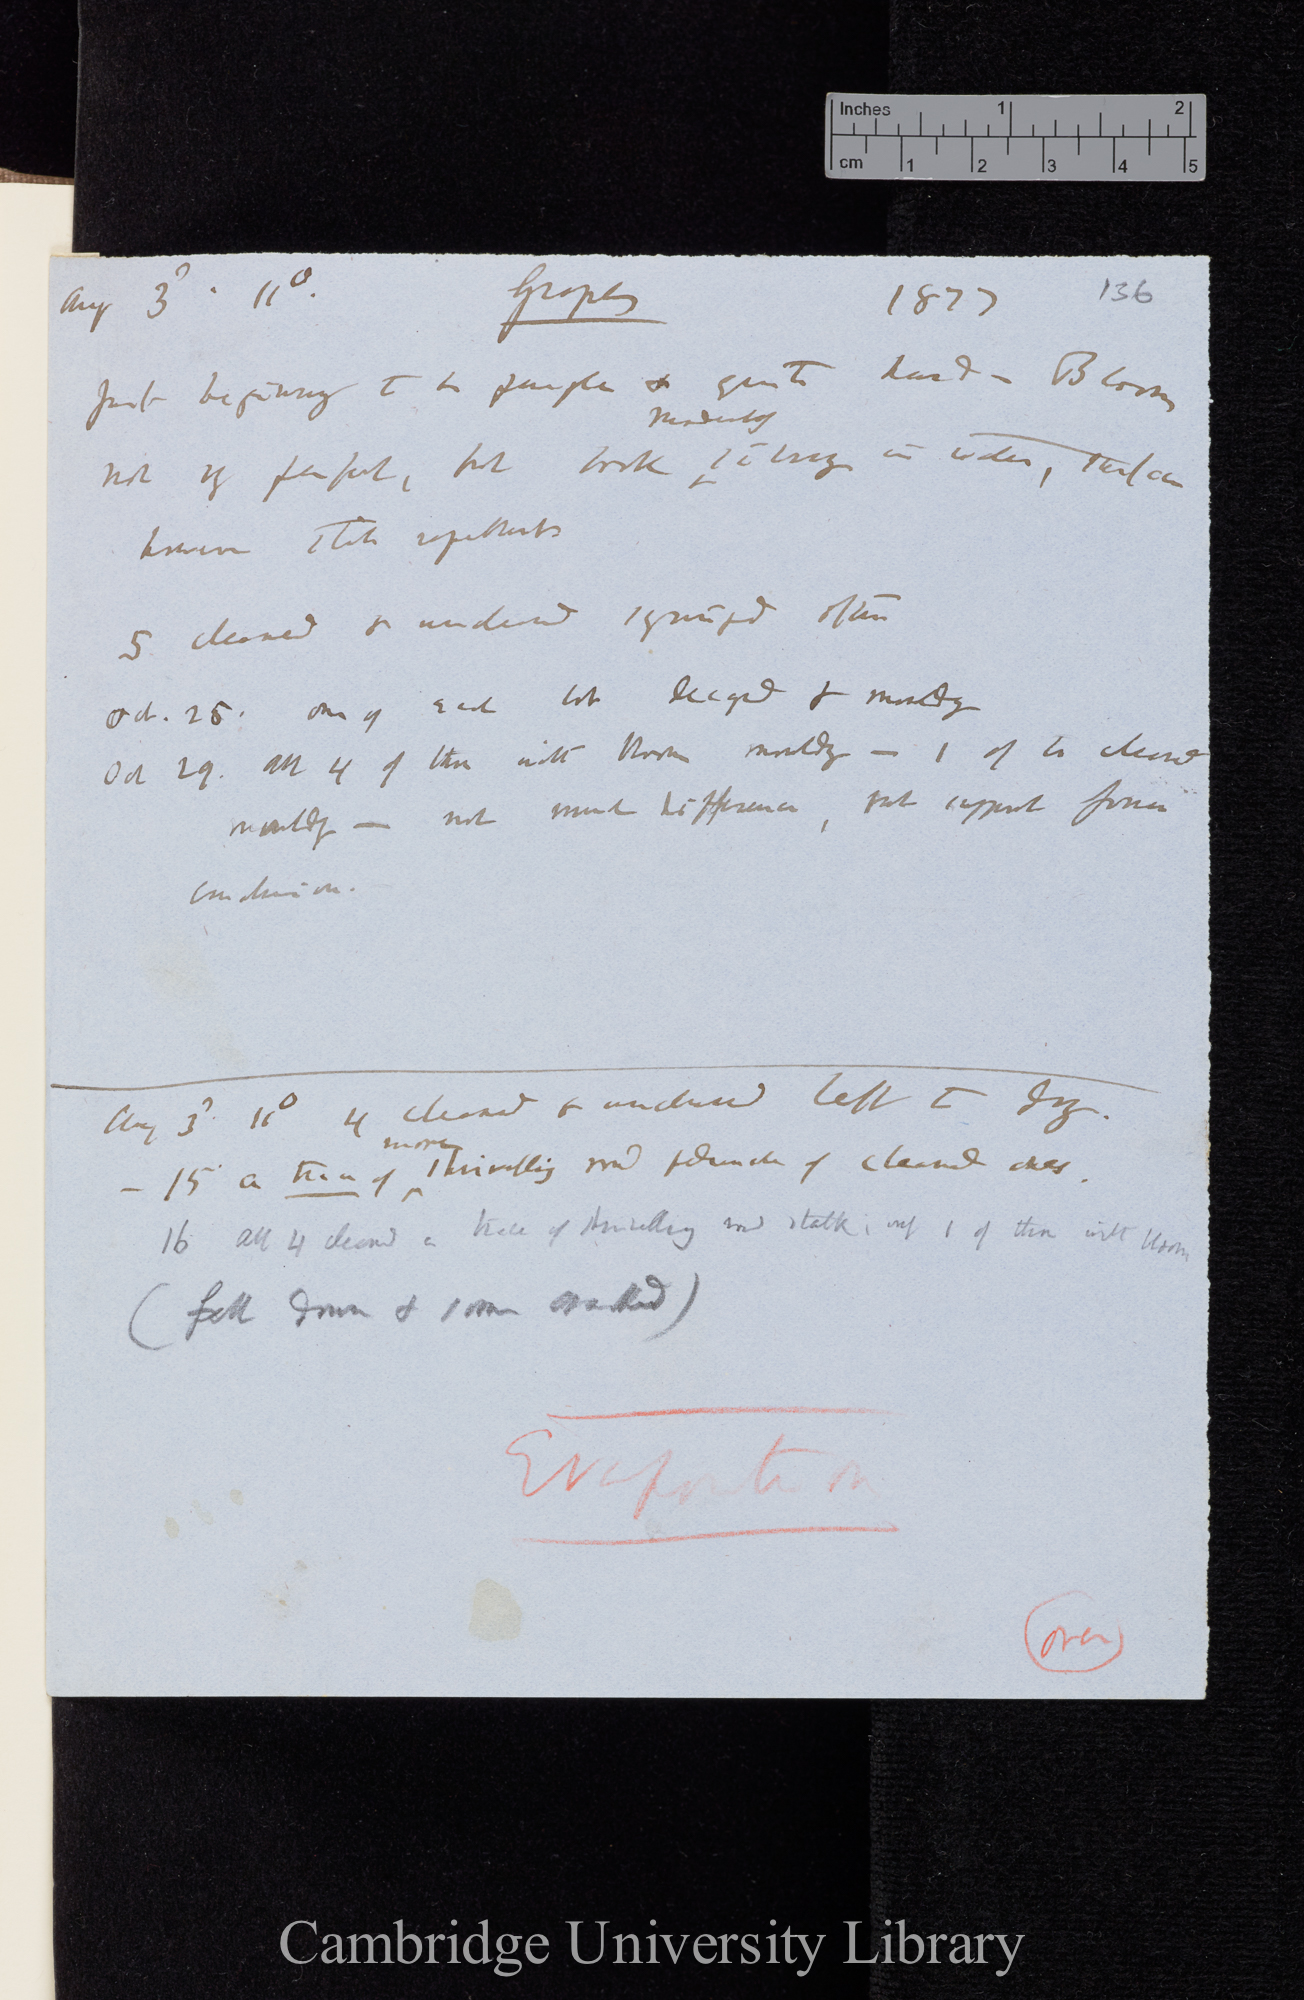 Inches 1 2
cm 1 2 3 4 5
Aug 3d. 11°. Grapes 1877 136
Just beginning to be purple & quite hard — Bloom
moderately
not perfect, but look in water, surface
however
5 cleaned & uncleaned syringed often
Oct. 25. one of each lot decayed & mouldy
Oct 29. all 4 of those with bloom mouldy — 1 of the cleaned
mouldy — not much difference, but support former
conclusion.
Aug 3d 11° 4 cleaned & uncleaned left to dry.
more
— 15 a trace of ^ shrivelling round peduncle of cleaned ones.
16 all 4 cleaned a trace of shrivelling round stalk; only 1 of those with bloom
(fell down & some cracked)
Evaporation
over
Cambridge University Library